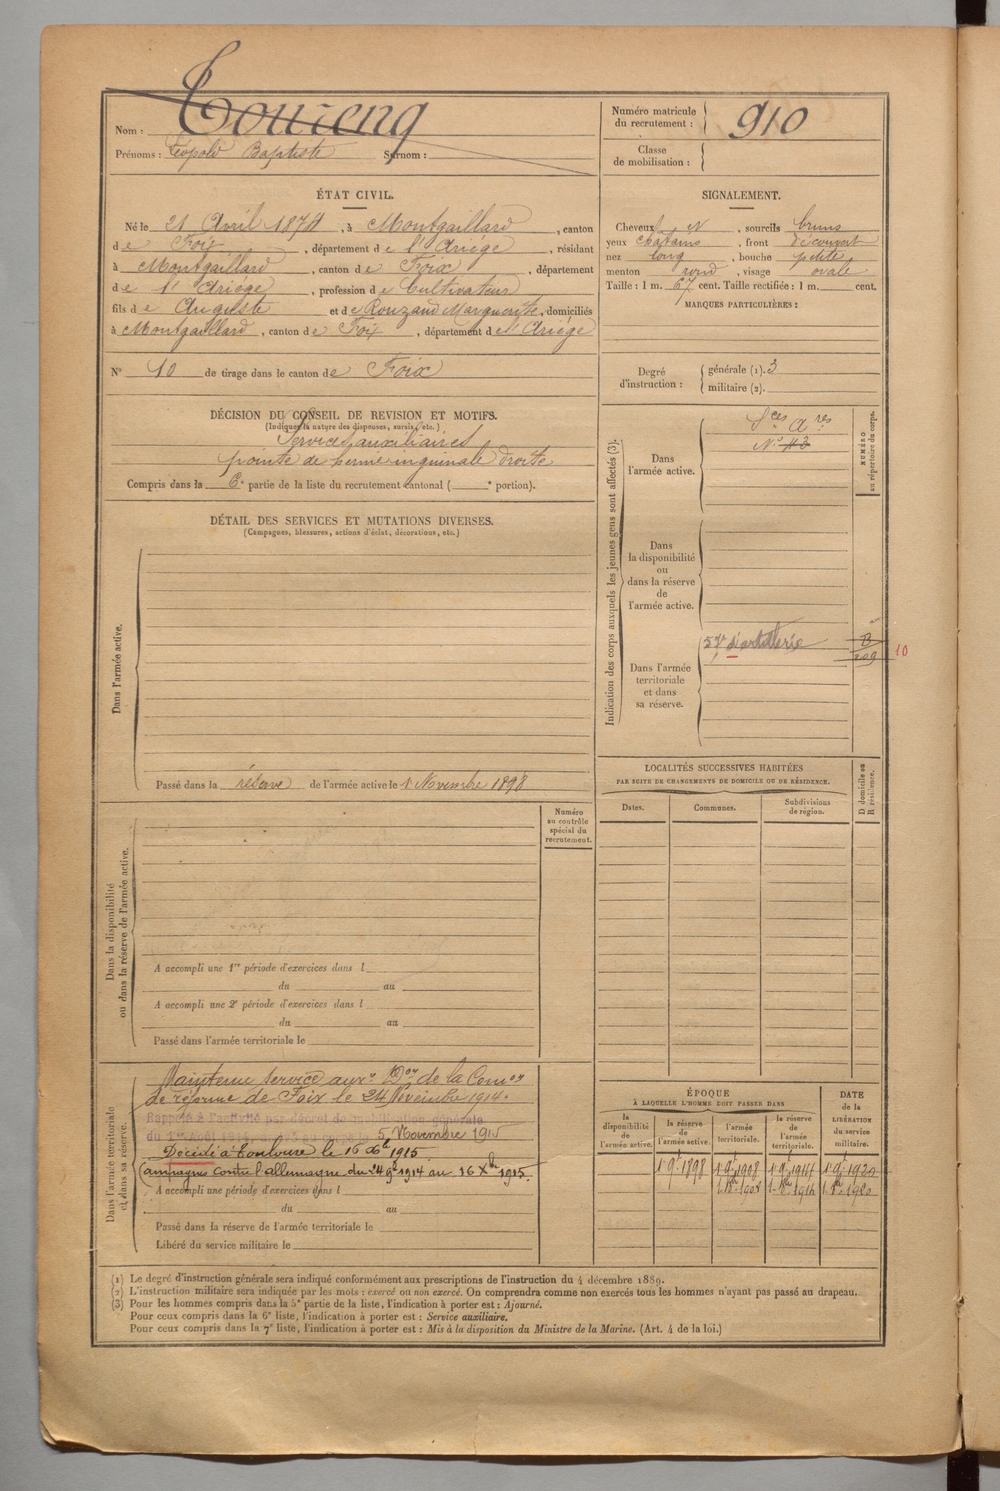 Nom :
Prénoms : Léopold Baptiste Surnom :
Numéro matricule
du recrutement : 910
Classe
de mobilisation :
ÉTAT CIVIL.
Né le 21 Avril 1874, à Montgaillard, canton
de Foix, département de l'Ariège, résidant
à Montgaillard, canton de Foix, département
de l'Ariège, profession de Cultivateur
fils de Auguste et de Rouzaud Marguerite, domiciliés
à Montgaillard, canton de Foix, département de l'Ariège
N° 10 de tirage dans le canton de Foix
SIGNALEMENT.
Cheveux N, sourcils bruns
yeux châtains, front découvert
nez long, bouche petite
menton rond, visage ovale
Taille : 1 m. 67 cent. Taille rectifiée : 1 m. cent.
MARQUES PARTICULIÈRES :
Degré
d'instruction :
générale (1). 3
militaire (2).
DÉCISION DU CONSEIL DE REVISION ET MOTIFS.
(Indiquer la nature des dispenses, sursis, etc.)
Services auxiliaires
pointe de hernie inguinale droite
Compris dans la 6e partie de la liste du recrutement cantonal ( e portion).
DÉTAIL DES SERVICES ET MUTATIONS DIVERSES.
(Campagnes, blessures, actions d'éclat, décorations, etc.)
Dans l'armée active.
Passé dans la réserve de l'armée active le 1er Novembre 1898
Indication des corps auxquels les jeunes gens sont affectés (3).
NUMÉRO
au répertoire du corps.
Dans
l'armée active.
Sces Ares
N° 43
Dans
la disponibilité
ou
dans la réserve
de
l'armée active.
Dans l'armée
territoriale
et dans
sa réserve.
d'artillerie
10
LOCALITÉS SUCCESSIVES HABITÉES
PAR SUITE DE CHANGEMENTS DE DOMICILE OU DE RÉSIDENCE.
Dates.
Communes.
Subdivisions
de région.
D domicile ou
R résidence.
Numéro
au contrôle
spécial du
recrutement.
Dans la disponibilité
ou dans la réserve de l'armée active.
A accompli une 1re période d'exercices dans l
du au
A accompli une 2e période d'exercices dans l
du au
Passé dans l'armée territoriale le
Dans l'armée territoriale
et dans sa réserve.
Maintenu service auxre Don de la Comon
de réforme de Foix le 24 Novembre 1914.
Rappelé à l'activité par décret de mobilisation générale
du 1er Août 1914 5 Novembre 1915
Décédé à Toulouse le 16 Xbre 1915
Campagne contre l'allemagne du 24 9bre 1914 au 16 Xbre 1915.
A accompli une période d'exercices dans l
du au
Passé dans la réserve de l'armée territoriale le
Libéré du service militaire le
ÉPOQUE
À LAQUELLE L'HOMME DOIT PASSER DANS
la
disponibilité
de
l'armée active.
la réserve
de
l'armée active.
l'armée
territoriale.
la réserve
de
l'armée
territoriale.
DATE
de la
LIBÉRATION
du service
militaire.
1er 9bre 1898 1er 9bre 1908 1er 9bre 1914 1er 9bre 1920
(1) Le degré d'instruction générale sera indiqué conformément aux prescriptions de l'instruction du 4 décembre 1889.
(2) L'instruction militaire sera indiquée par les mots : exercé ou non exercé. On comprendra comme non exercés tous les hommes n'ayant pas passé au drapeau.
(3) Pour les hommes compris dans la 5e partie de la liste, l'indication à porter est : Ajourné.
Pour ceux compris dans la 6e liste, l'indication à porter est : Service auxiliaire.
Pour ceux compris dans la 7e liste, l'indication à porter est : Mis à la disposition du Ministre de la Marine. (Art. 4 de la loi.)